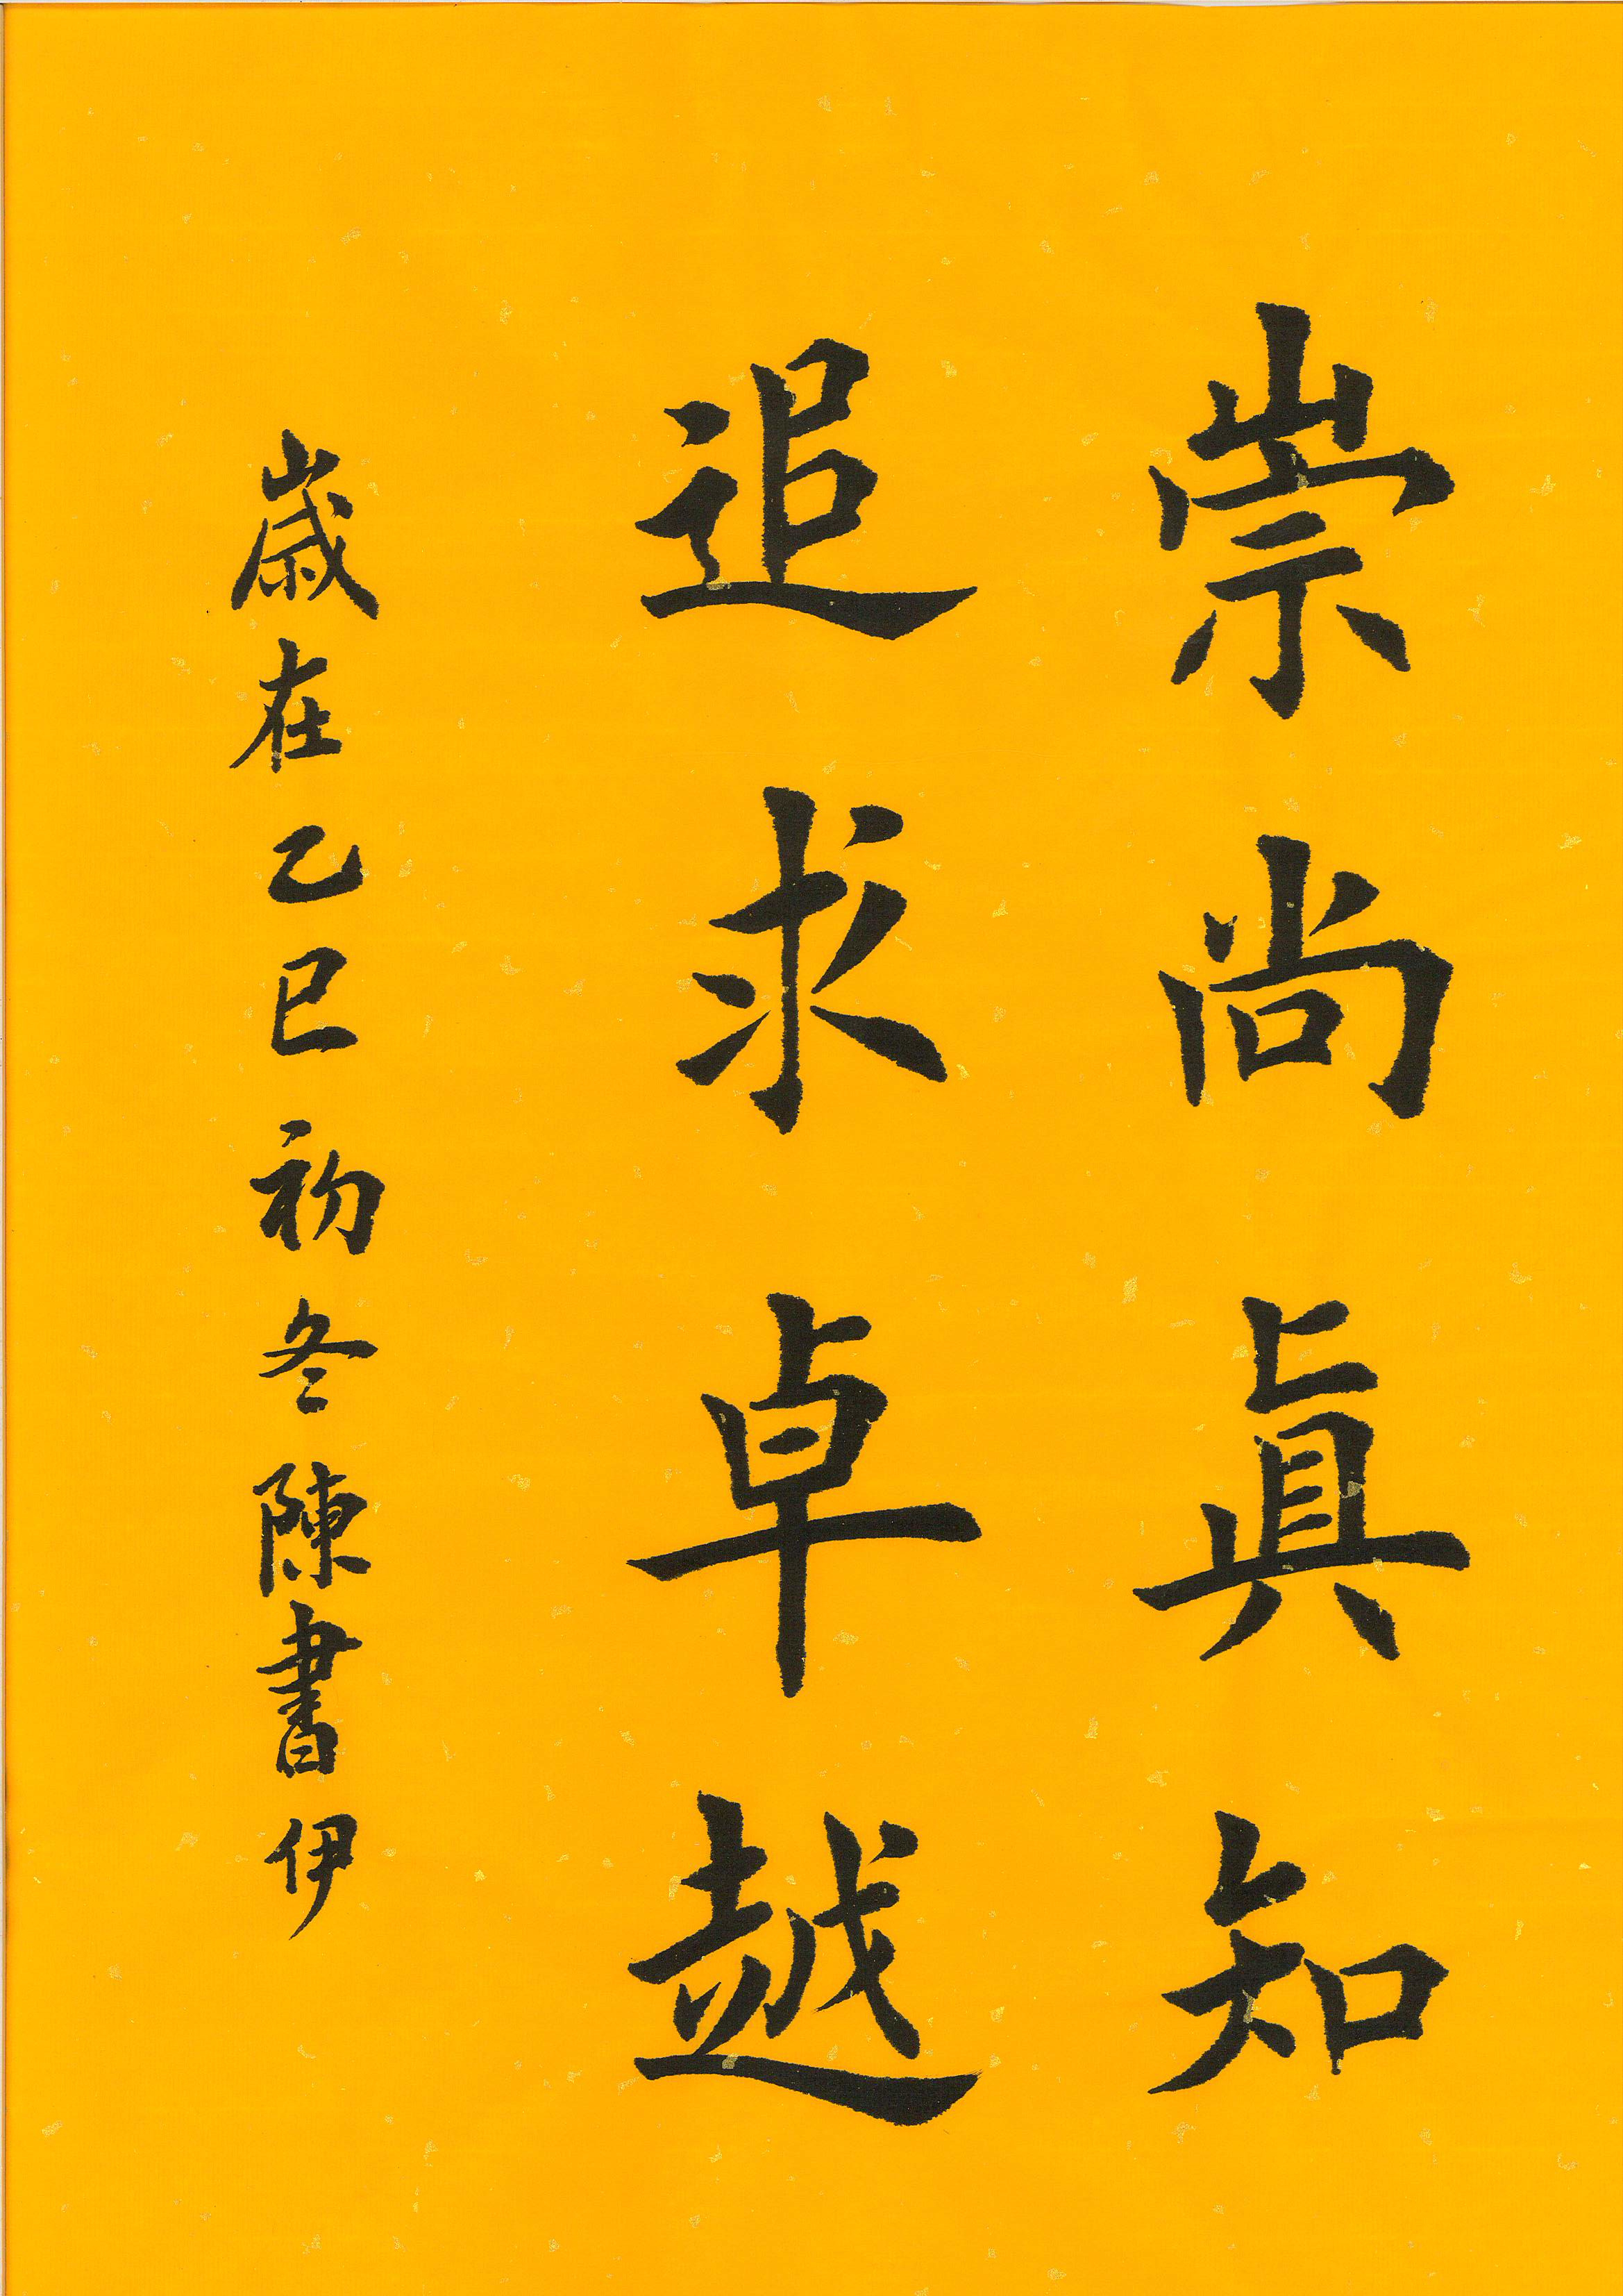 崇尚眞知
追求卓越
歲在乙巳初冬陳書伊